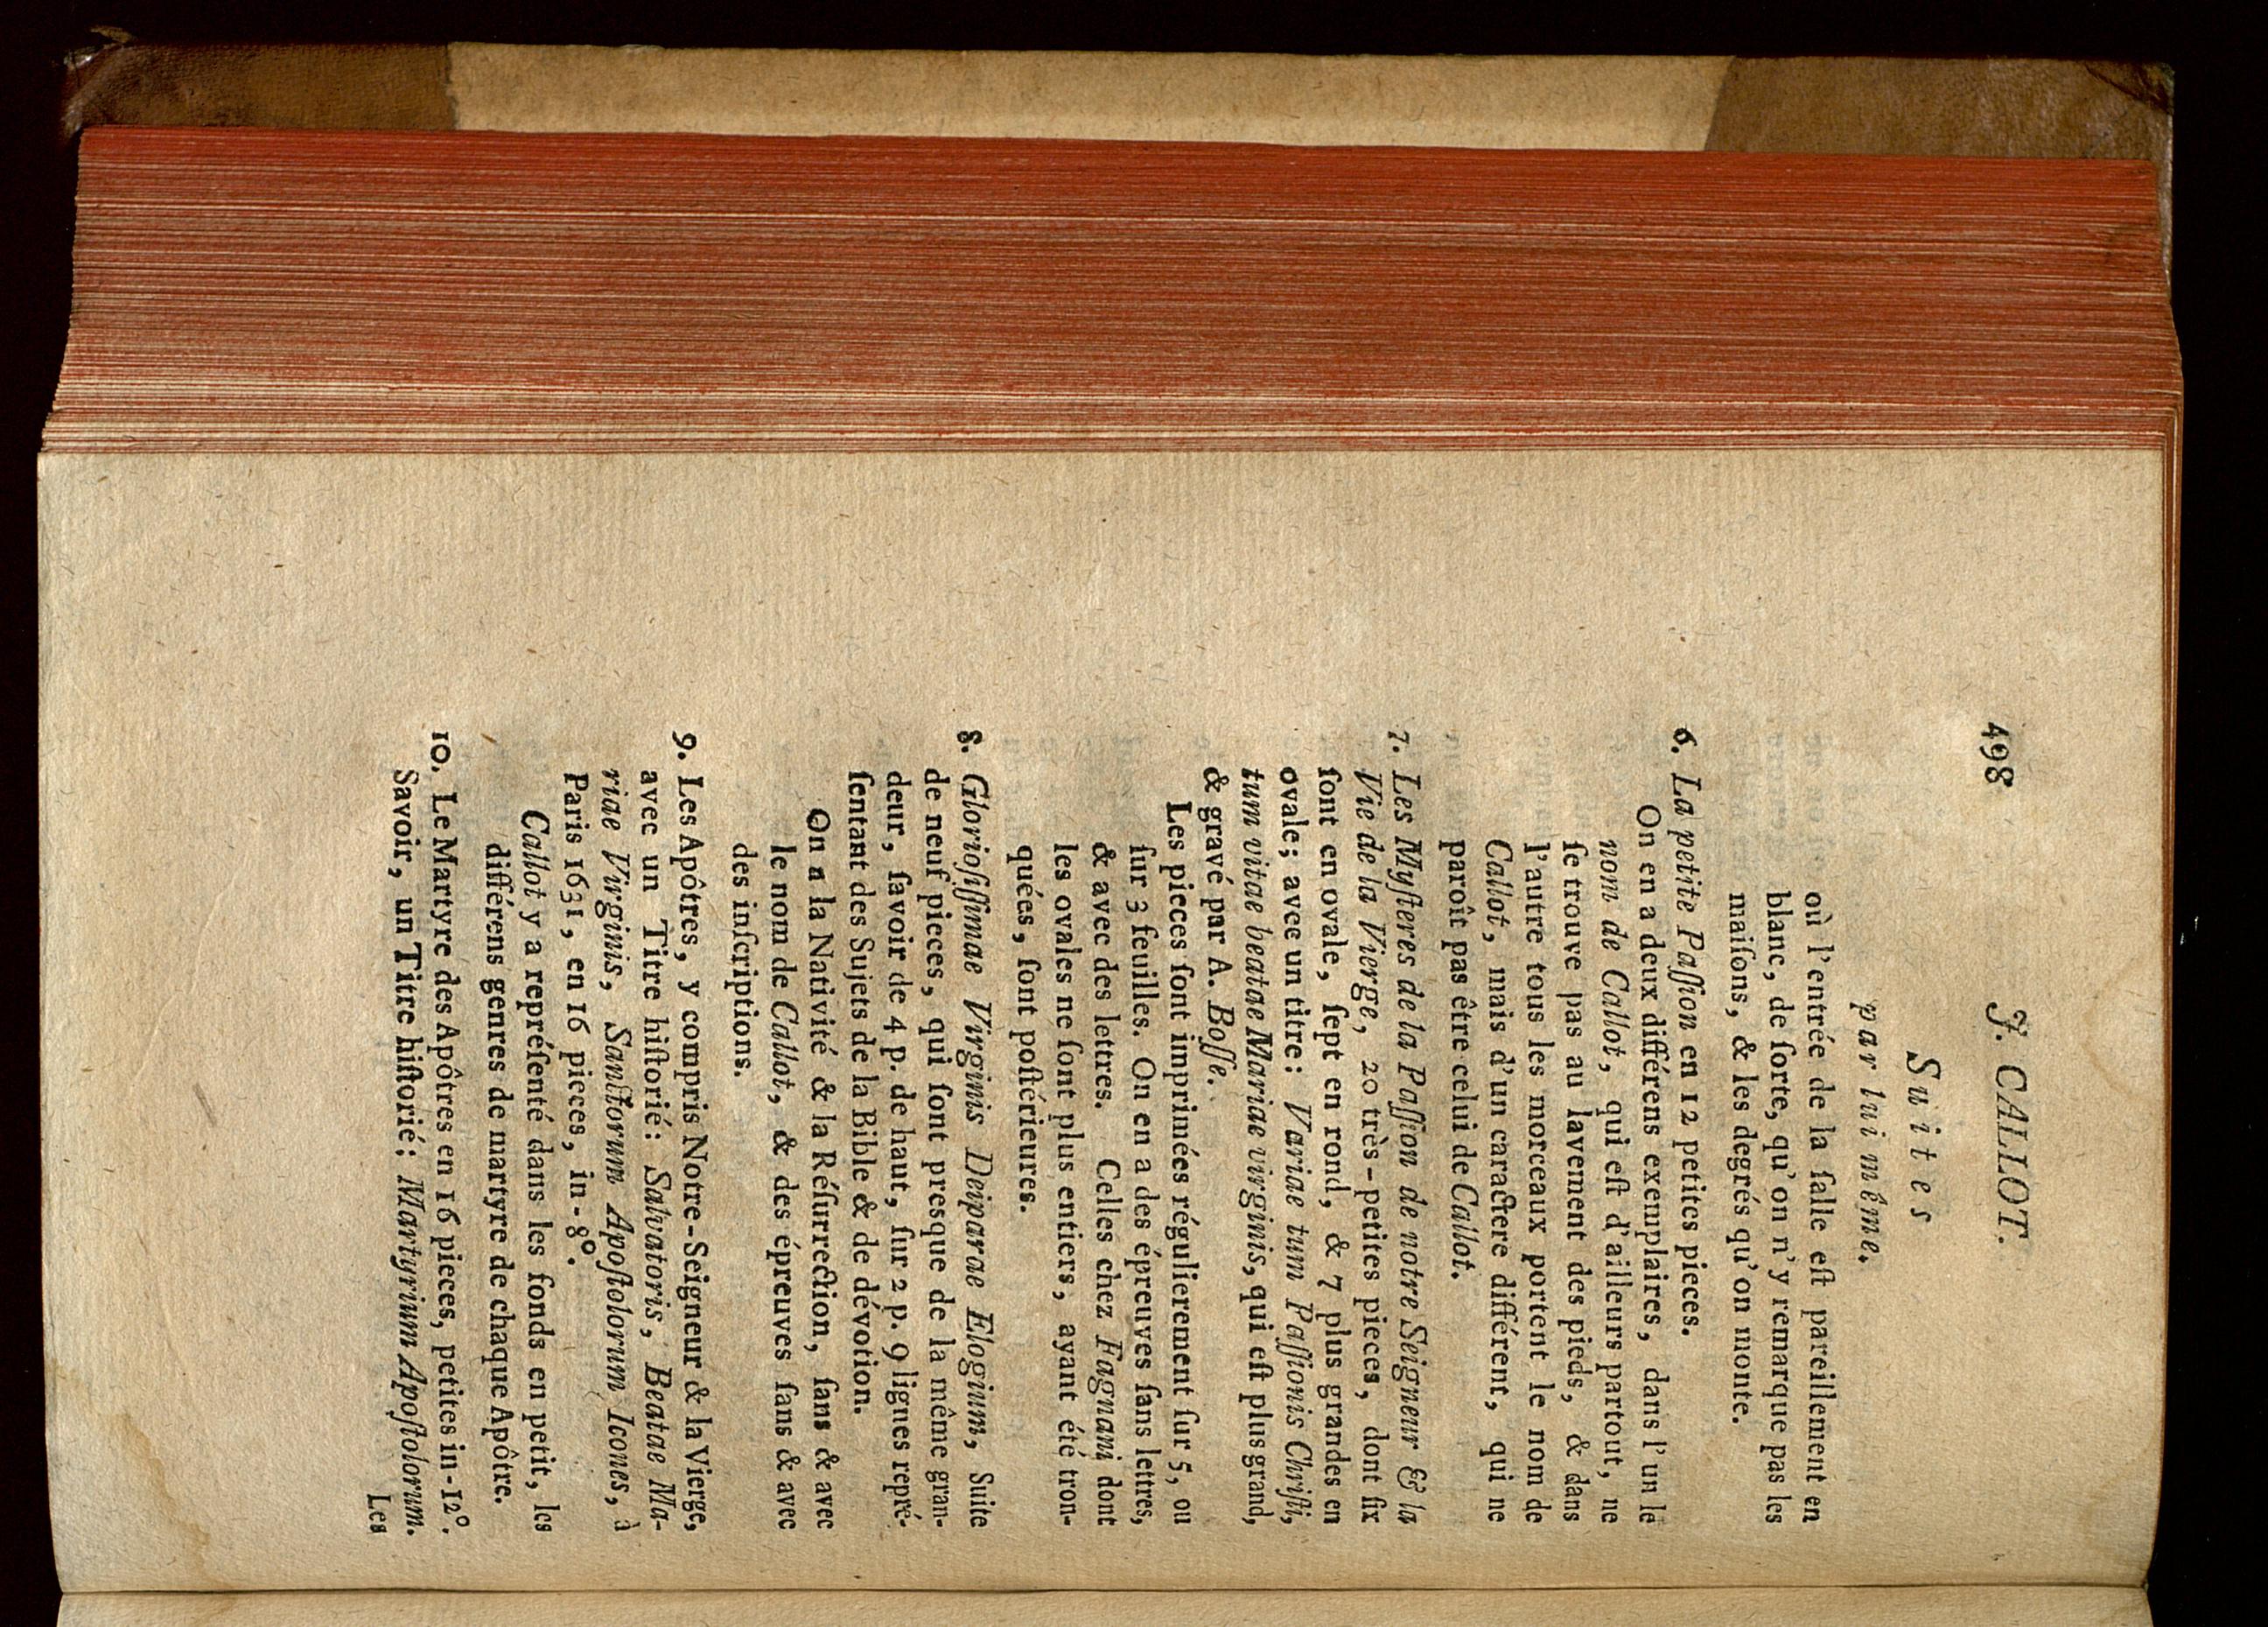 498 J. CALLOT.
Suites
par lui même.
où l'entrée de la ſalle eſt pareillement en
blanc, de ſorte, qu'on n'y remarque pas les
maiſons, & les degrés qu'on monte.
6. La petite Paſſion en 12 petites pieces.
On en a deux différens exemplaires, dans l'un le
nom de Callot, qui eſt d'ailleurs partout, ne
ſe trouve pas au lavement des pieds, & dans
l'autre tous les morceaux portent le nom de
Callot, mais d'un caractere différent, qui ne
paroît pas être celui de Callot.
7. Les Myſteres de la Paſſion de notre Seigneur & la
Vie de la Vierge, 20 très-petites pieces, dont ſix
ſont en ovale, ſept en rond, & 7 plus grandes en
ovale; avec un titre: Variae tum Paſſionis Chriſti,
tum vitae beatae Mariae virginis, qui eſt plus grand,
& gravé par A. Boſſe.
Les pieces ſont imprimées régulierement ſur 5, ou
ſur 3 feuilles. On en a des épreuves ſans lettres,
& avec des lettres. Celles chez Fagnani dont
les ovales ne ſont plus entiers, ayant été tron-
quées, ſont poſtérieures.
8. Glorioſiſſimae Virginis Deiparae Elogium, Suite
de neuf pieces, qui ſont presque de la même gran-
deur, ſavoir de 4 p. de haut, ſur 2 p. 9 lignes repré-
ſentant des Sujets de la Bible & de dévotion.
On a la Nativité & la Réſurrection, ſans & avec
le nom de Callot, & des épreuves ſans & avec
des inſcriptions.
9. Les Apôtres, y compris Notre-Seigneur & la Vierge,
avec un Titre hiſtorié: Salvatoris, Beatae Ma-
riae Virginis, Sanctorum Apoſtolorum Icones, à
Paris 1631, en 16 pieces, in-8º.
Callot y a repréſenté dans les fonds en petit, les
différens genres de martyre de chaque Apôtre.
10. Le Martyre des Apôtres en 16 pieces, petites in-12º.
Savoir, un Titre hiſtorié: Martyrium Apoſtolorum.
Les